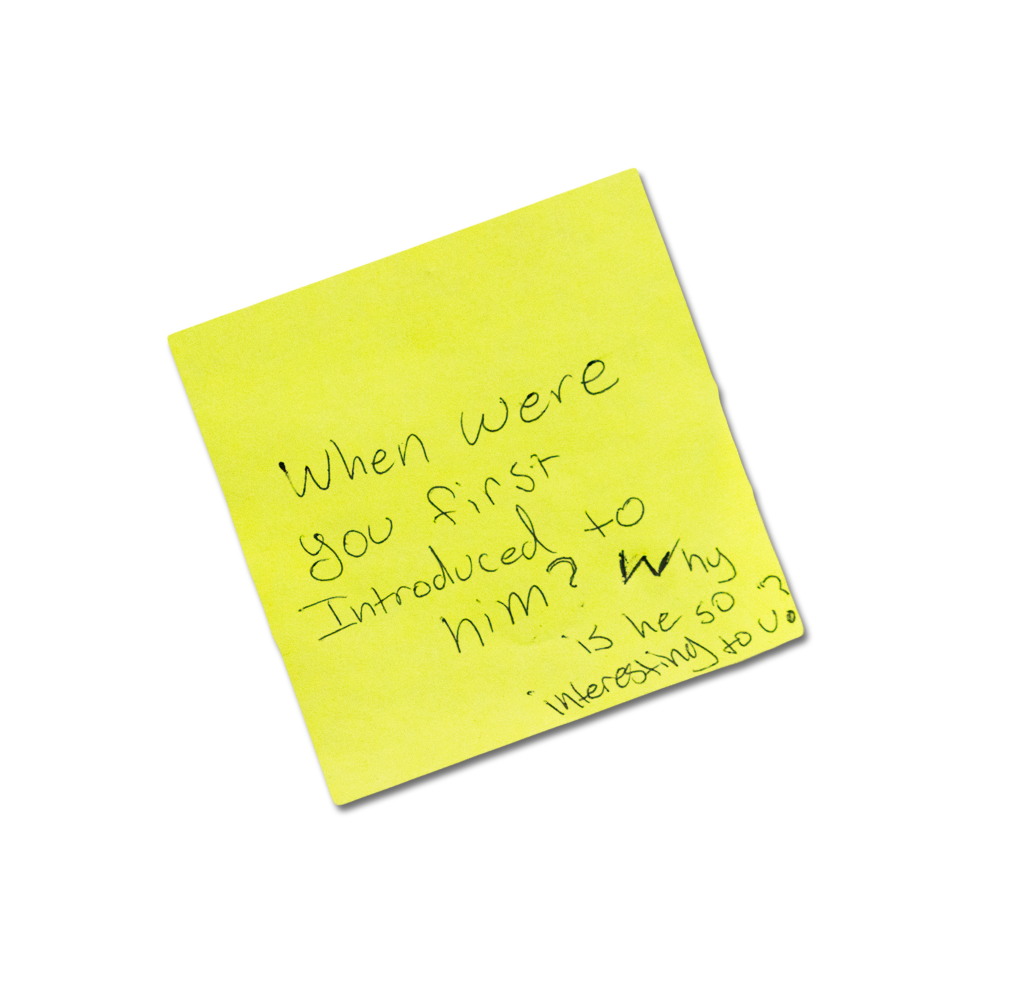 When were
you first
Introduced to
him? Why
is he so
interesting to u?